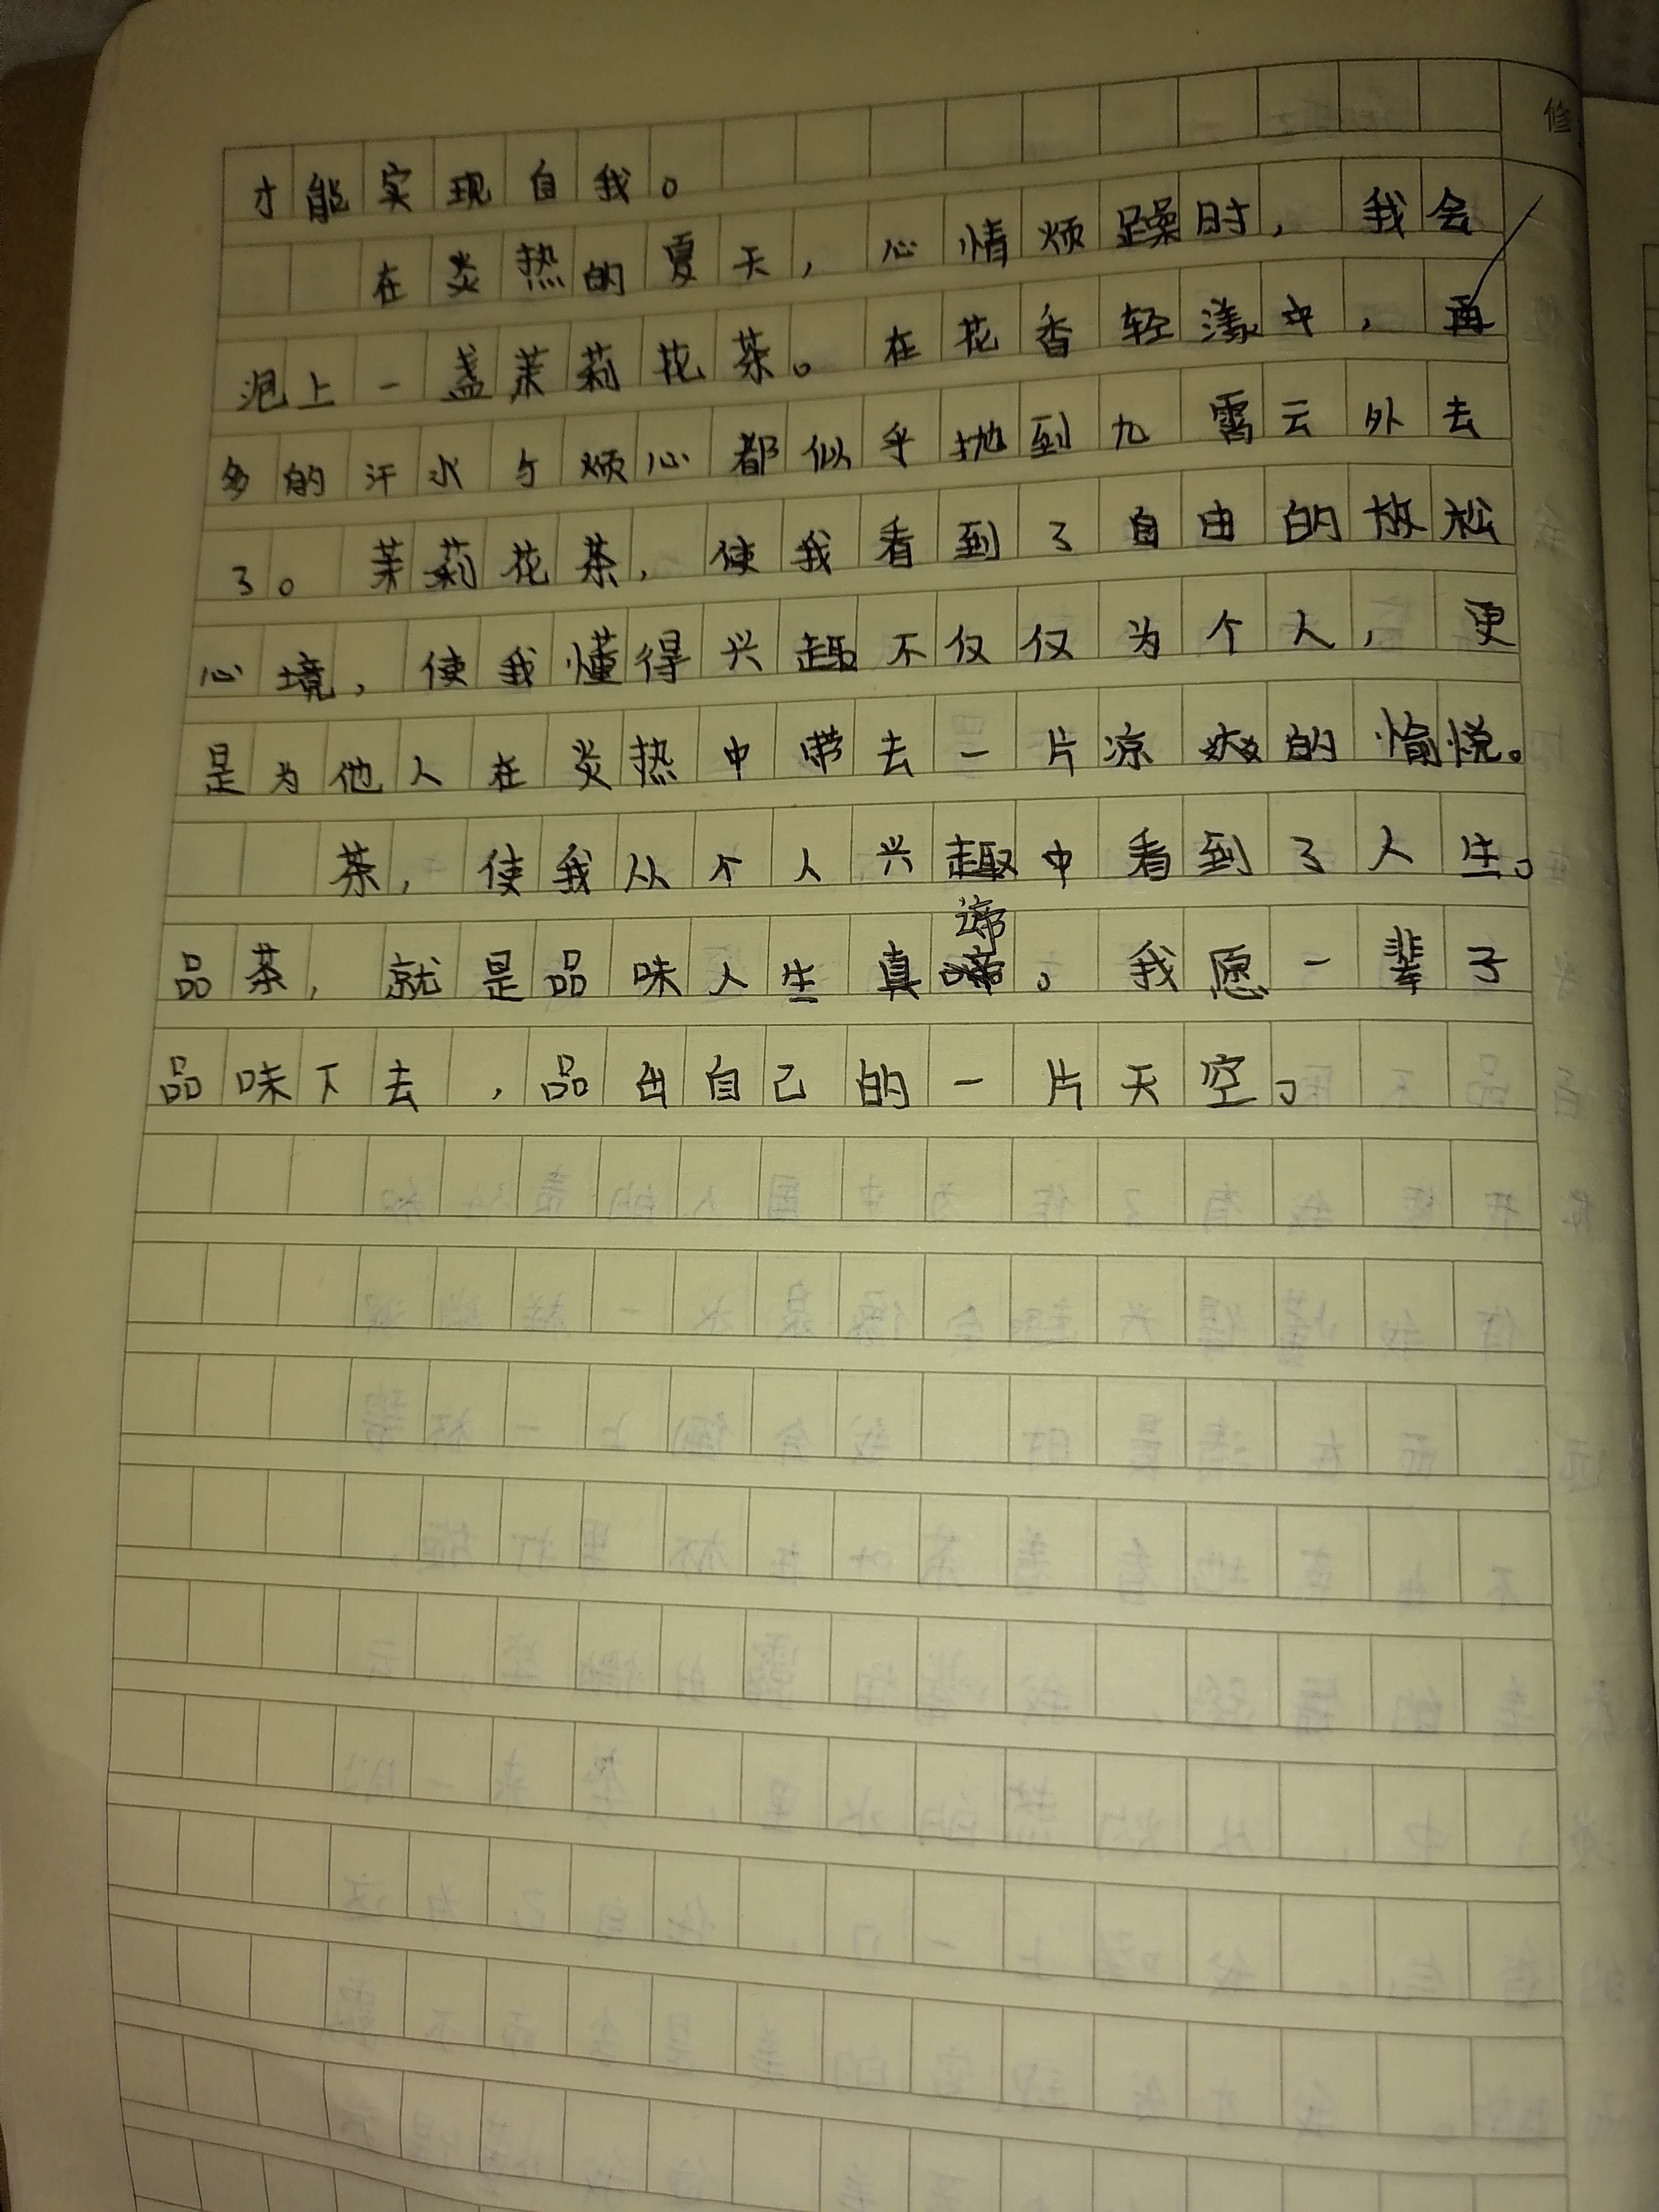 修
才能实现自我。
在炎热的夏天，心情烦躁时，我会
泡上一盏茉莉花茶。在花香轻漾中，再
多的汗水与烦心都似乎抛到九霄云外去
了。茉莉花茶，使我看到了自由的放松
心境，使我懂得兴趣不仅仅为个人，更
是为他人在炎热中带去一片凉爽的愉悦。
茶，使我从个人兴趣中看到了人生。
品茶，就是品味人生真谛。我愿一辈子
品味下去，品出自己的一片天空。